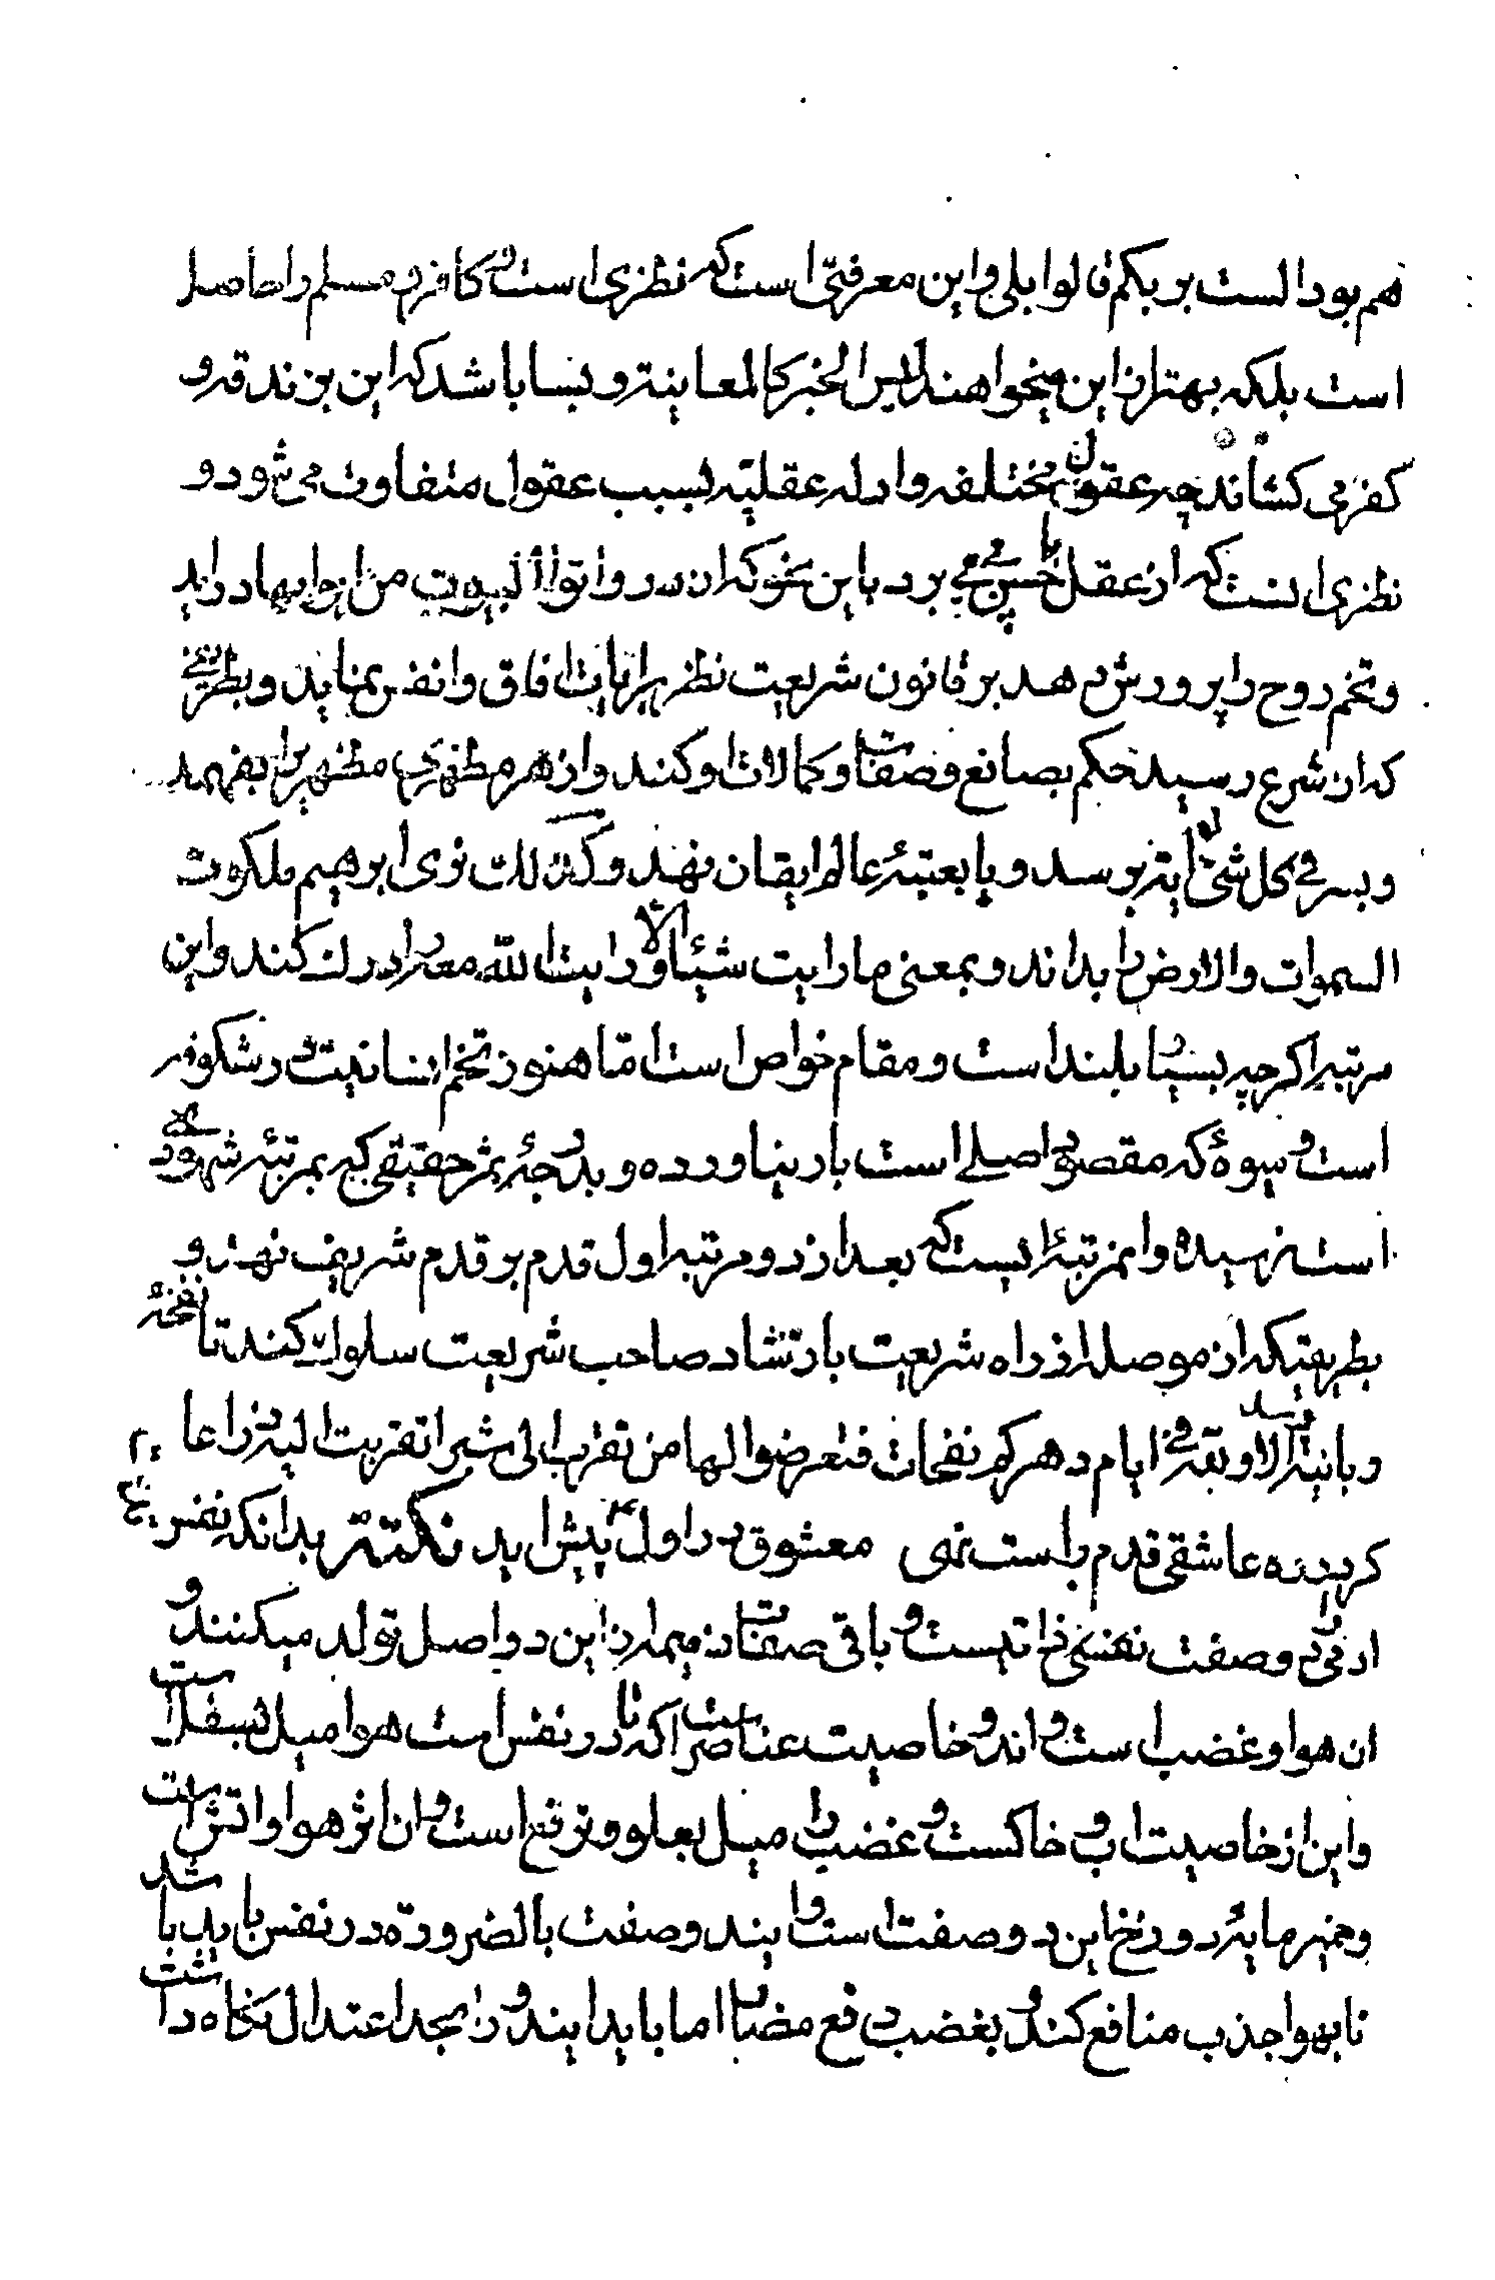 هم بود الست بربکم قالوا بلی و این معرفتی است که نظری است و کافر و مسلم را حاصل
است بلکه بهتر از این میخواهند لیس الخبر کالمعاینة و بسا باشد که این بزندقه و
کفر می کشاند چه عقول مختلفه و ادله عقلیّه بسبب عقول متفاوت می شود و
نظری انست که از عقل با حس پی می برد باین نحو که از در واتوا البیوت من ابوابها دراید
و تخم روح را پرورش دهد بر قانون شریعت نظر برایات افاق و انفس نماید و بطریقی
که از شرع رسید حکم بصانع و صفات و کمالات او کند و از هر مظهری مظهریرا بفهمد
و بسر فی کل شئ له ایة برسد و پا بعتبۀ عالم ایقان نهد و کذلک نری ابرهیم ملکوت
السموات والارض را بداند و بمعنی ما رایت شیئا الا و رایت الله معه را درک کند و این
مرتبه اکرچه بسیار بلند است و مقام خواص است امّا هنوز تخم انسانیت در شکوفه
است و میوۀ که مقصود اصلی است بار نیاورده و بدرجۀ ثمر حقیقی که بمرتبۀ شهودی
است نرسیده و ان مرتبۀ ایست که بعد از دو مرتبه اول قدم بر قدم شریف نهد و
بطریقیکه از موصل از راه شریعت بارشاد صاحب شریعت سلوک کند تا نفخۀ
ربانیة الا و بقه فی ایام دهرکم نفحات فتعرضوا لها من تقرب الی شبرا تقربت الیه ذراعا برسد
کر در ره عاشقی قدم راست نهی معشوق در اول پیش اید نکتة بدانکه نفس
ادمی دو صفت نفسی ذاتیست و باقی صفات ذمیمه از این دو اصل تولد میکنند و
ان هوا و غضب است و اندو خاصیت عناصر است که تا در نفس است هوا میل بسفل است
و این از خاصیت اب و خاکست و غضب را میل بعلو و ترفع است و ان اثر هوا و اتش است
و خمیر مایۀ دوزخ این دو صفت است و ایندو صفت بالضرورة در نفس باید باشد
تا بهوا جذب منافع کند و بغضب دفع مضار اما باید ایندو را بحد اعتدال نکاه داشت